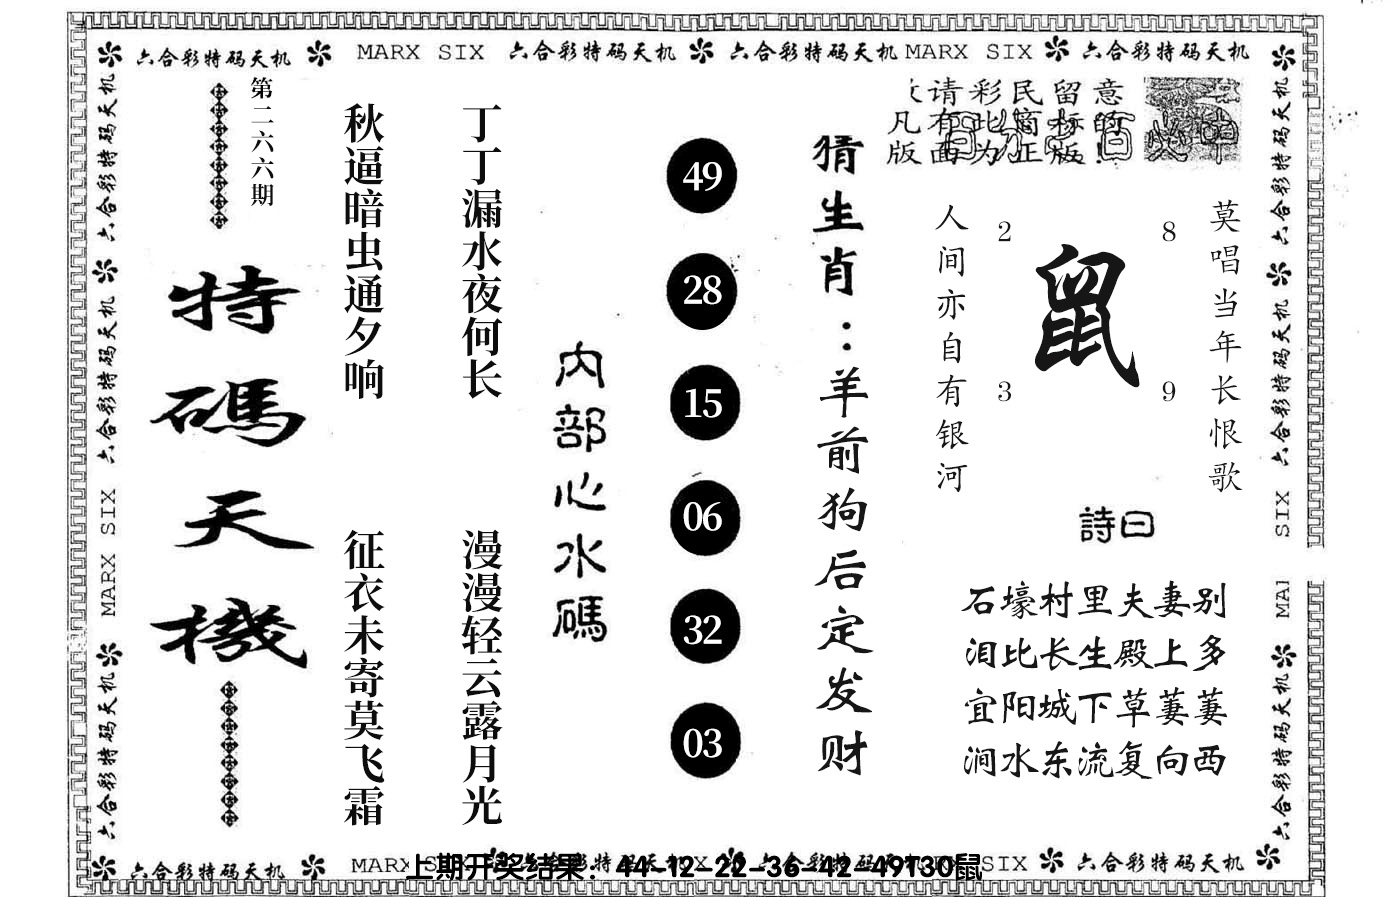 六合彩特码天机 MARX SIX 六合彩特码天机 六合彩特码天机 MARX SIX 六合彩特码天机
第二六六期
特碼天機
秋逼暗虫通夕响
征衣未寄莫飞霜
丁丁漏水夜何长
漫漫轻云露月光
内部心水碼
49
28
15
06
32
03
猜生肖：羊前狗后定发财
请彩民留意
凡有此商标的
版面为正版!
人间亦自有银河
2
8
鼠
3
9
莫唱当年长恨歌
詩曰
石壕村里夫妻别
泪比长生殿上多
宜阳城下草萋萋
涧水东流复向西
六合彩特码天机
六合彩特码天机
MARX SIX
六合彩特码天机
六合彩特码天机
六合彩特码天机
SIX
六合彩特码天机
六合彩特码天机 MARX SIX
SIX 六合彩特码天机
上期开奖结果：44-12-22-36-42-49T30鼠